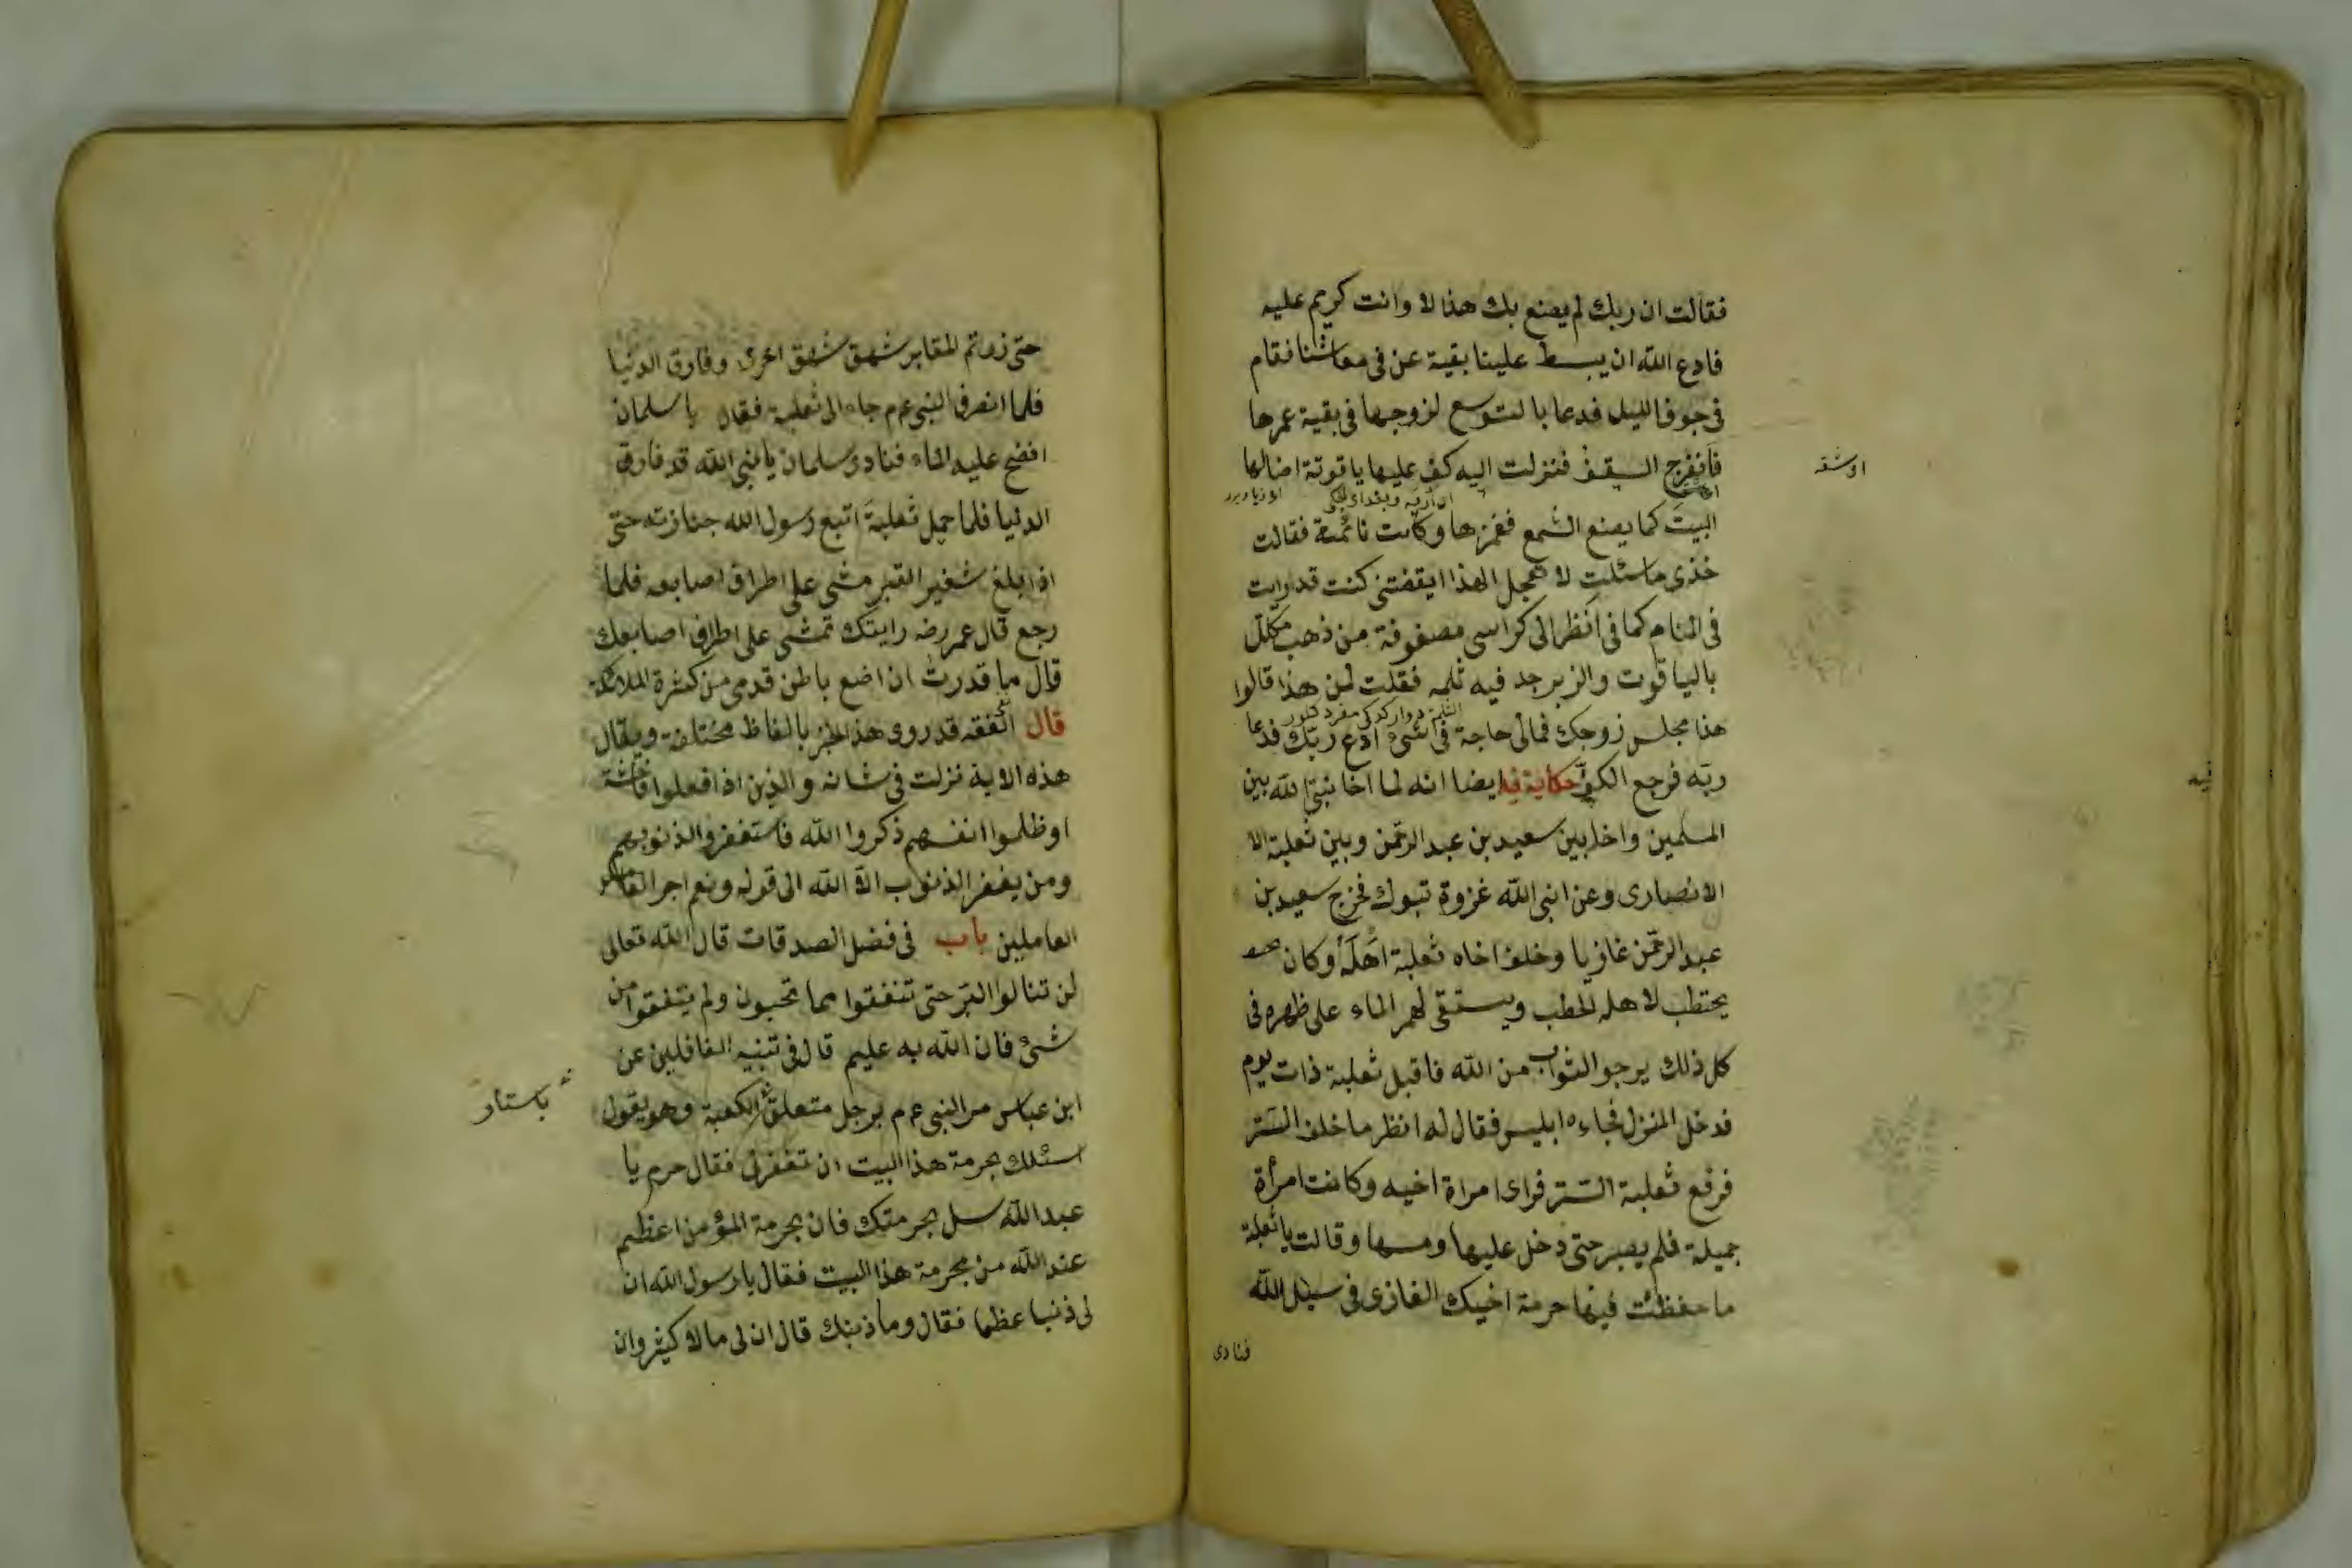 فقالت ان ربك لم يصنع بك هذا الا وانت كريم عليه
فادع الله ان يبسط علينا بقية عن في معاشنا فقام
في جوف الليل فدعا بالتوسع لزوجها في بقية عمرها
فانفرج السقف فنزلت اليه كف عليها ياقوتة اضالها
البيت كما يصنع الشمع فغمزها وكانت نائمة فقالت
خذى ماسئلت لا تعجل الهذا ايقفتنى كنت قد رايت
في المنام كما في انظر الى كراسى مصفوفة من ذهب مكلل
بالياقوت والزبرجد فيه ثلمه فقلت لمن هذا قالوا
هذا مجلس زوجك فمالى حاجة في شئ ادع ربك فدعا
ربه فرجع الكف حكاية فيه ايضا انه لما اخا نبى الله بين
المسلمين واخا بين سعيد بن عبد الرحمن وبين ثعلبة الا
الانصارى وعن انبى الله غزوة تبوك فخرج سعيد بن
عبد الرحمن غازيا وخلف اخاه ثعلبة اهله وكان
يحتطب لاهله الحطب ويستقى لهم الماء على ظهره في
كل ذلك يرجو الثواب من الله فاقبل ثعلبة ذات يوم
فدخل المنزل فجاءه ابليس فقال له انظر ما خلف الستر
فرفع ثعلبة الستر فراى امراة اخيه وكانت امرأة
جميلة فلم يصبر حتى دخل عليها ومسها وقالت يا ثعلبة
ما حفظت فيها حرمة اخيك الغازى في سبيل الله
فنادى
حتى زرتم المقابر شهق شهق اخرى وفارق الدنيا
فلما انصرف النبى عم جاء الى ثعلبة فقال يا سلمان
افضح عليه الماء فنادى سلمان يا نبى الله قد فارق
الدنيا فلما حمل ثعلبة اتبع رسول الله جنازته حتى
اذا بلغ شفير القبر مشى على اطراف اصابعه فلما
رجع قال عمر رضه رايتك تمشى على اطراف اصابعك
قال ما قدرت ان اضع باطن قدمى من كثرة الملائكة
قال الفقه قد روى هذا الخبر بالفاظ مختلفة ويقال
هذه الاية نزلت في شانه والذين اذا فعلوا فاحشة
او ظلموا انفسهم ذكروا الله فاستغفروا لذنوبهم
ومن يغفر الذنوب الا الله الى قوله ونعم اجر
العاملين باب في فضل الصدقات قال الله تعالى
لن تنالوا البر حتى تنفقوا مما تحبون ولم يتفقوا من
شئ فان الله به عليم قال في تنبيه الغافلين عن
ابن عباس مر النبى عم برجل متعلق الكعبة وهو يقول
باستار
اسئلك بحرمة هذا البيت ان تغفرلى فقال حرم يا
عبد الله سل بحرمتك فان بحرمة المؤمن اعظم
عند الله من بحرمة هذا البيت فقال يا رسول الله ان
لى ذنبا عظما فقال وما ذنبك قال ان لى مالا كثير وان